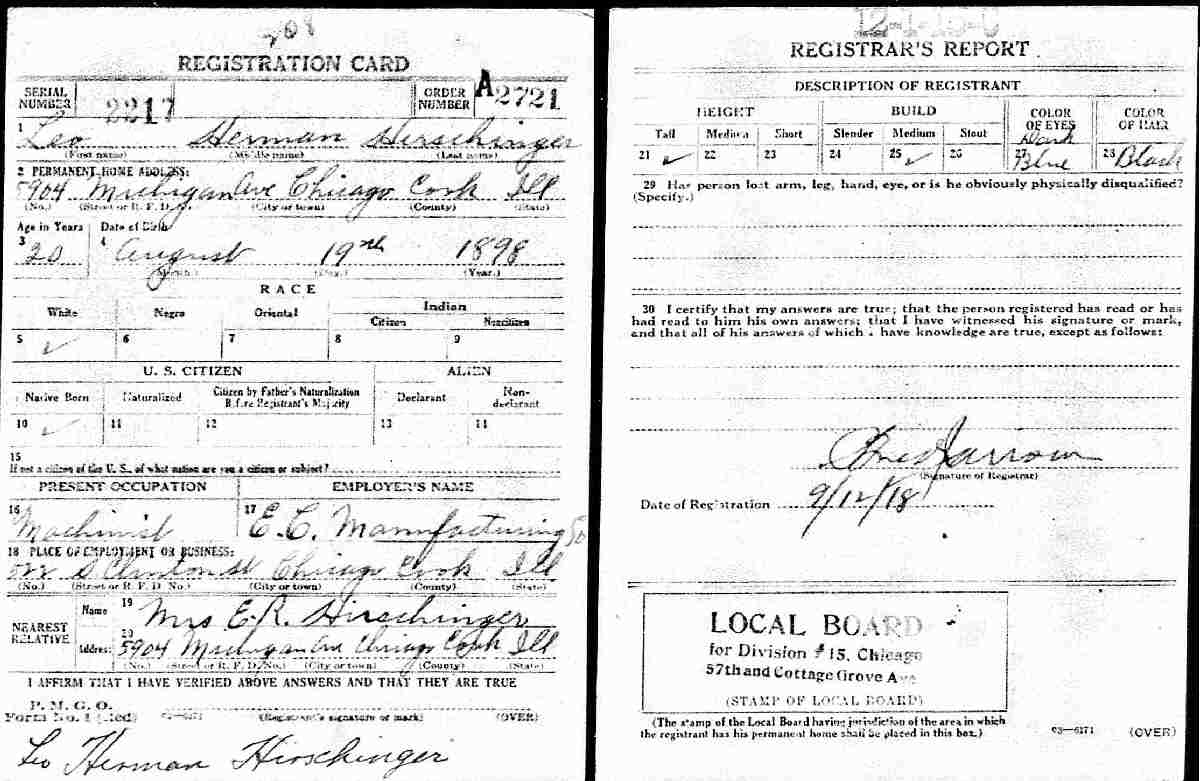 708
REGISTRATION CARD
SERIAL NUMBER 2217 ORDER NUMBER A2721
1 Leo Herman Hirschinger
(First name) (Middle name) (Last name)
2 PERMANENT HOME ADDRESS:
5904 Michigan Ave Chicago Cook Ill
(No.) (Street or R. F. D. No.) (City or town) (County) (State)
Age in Years Date of Birth
3 20 4 August 19th 1898
(Month.) (Day.) (Year.)
RACE
White Negro Oriental Indian
Citizen Noncitizen
5 ✓ 6 7 8 9
U. S. CITIZEN ALIEN
Native Born Naturalized Citizen by Father's Naturalization Before Registrant's Majority Declarant Non-declarant
10 ✓ 11 12 13 14
15
If not a citizen of the U. S., of what nation are you a citizen or subject?
PRESENT OCCUPATION EMPLOYER'S NAME
16 Machinist 17 E. C. Manufacturing Co
18 PLACE OF EMPLOYMENT OR BUSINESS:
S Clinton St Chicago Cook Ill
(No.) (Street or R. F. D. No.) (City or town) (County) (State)
NEAREST RELATIVE
Name 19 Mrs E. R. Hirschinger
Address 20 5904 Michigan Ave Chicago Cook Ill
(No.) (Street or R. F. D. No.) (City or town) (County) (State)
I AFFIRM THAT I HAVE VERIFIED ABOVE ANSWERS AND THAT THEY ARE TRUE
P. M. G. O.
Form No. 1 (Red) 03—6171 (Registrant's signature or mark) (OVER)
Leo Herman Hirschinger
REGISTRAR'S REPORT
DESCRIPTION OF REGISTRANT
HEIGHT BUILD COLOR OF EYES COLOR OF HAIR
Tall Medium Short Slender Medium Stout
21 ✓ 22 23 24 25 ✓ 26 27 Dark Blue 28 Black
29 Has person lost arm, leg, hand, eye, or is he obviously physically disqualified?
(Specify.)
30 I certify that my answers are true; that the person registered has read or has
had read to him his own answers; that I have witnessed his signature or mark,
and that all of his answers of which I have knowledge are true, except as follows:
(Signature of Registrar)
Date of Registration 9/12/18
LOCAL BOARD
for Division #15, Chicago
57th and Cottage Grove Ave
(STAMP OF LOCAL BOARD)
(The stamp of the Local Board having jurisdiction of the area in which
the registrant has his permanent home shall be placed in this box.)
03—6171 (OVER)